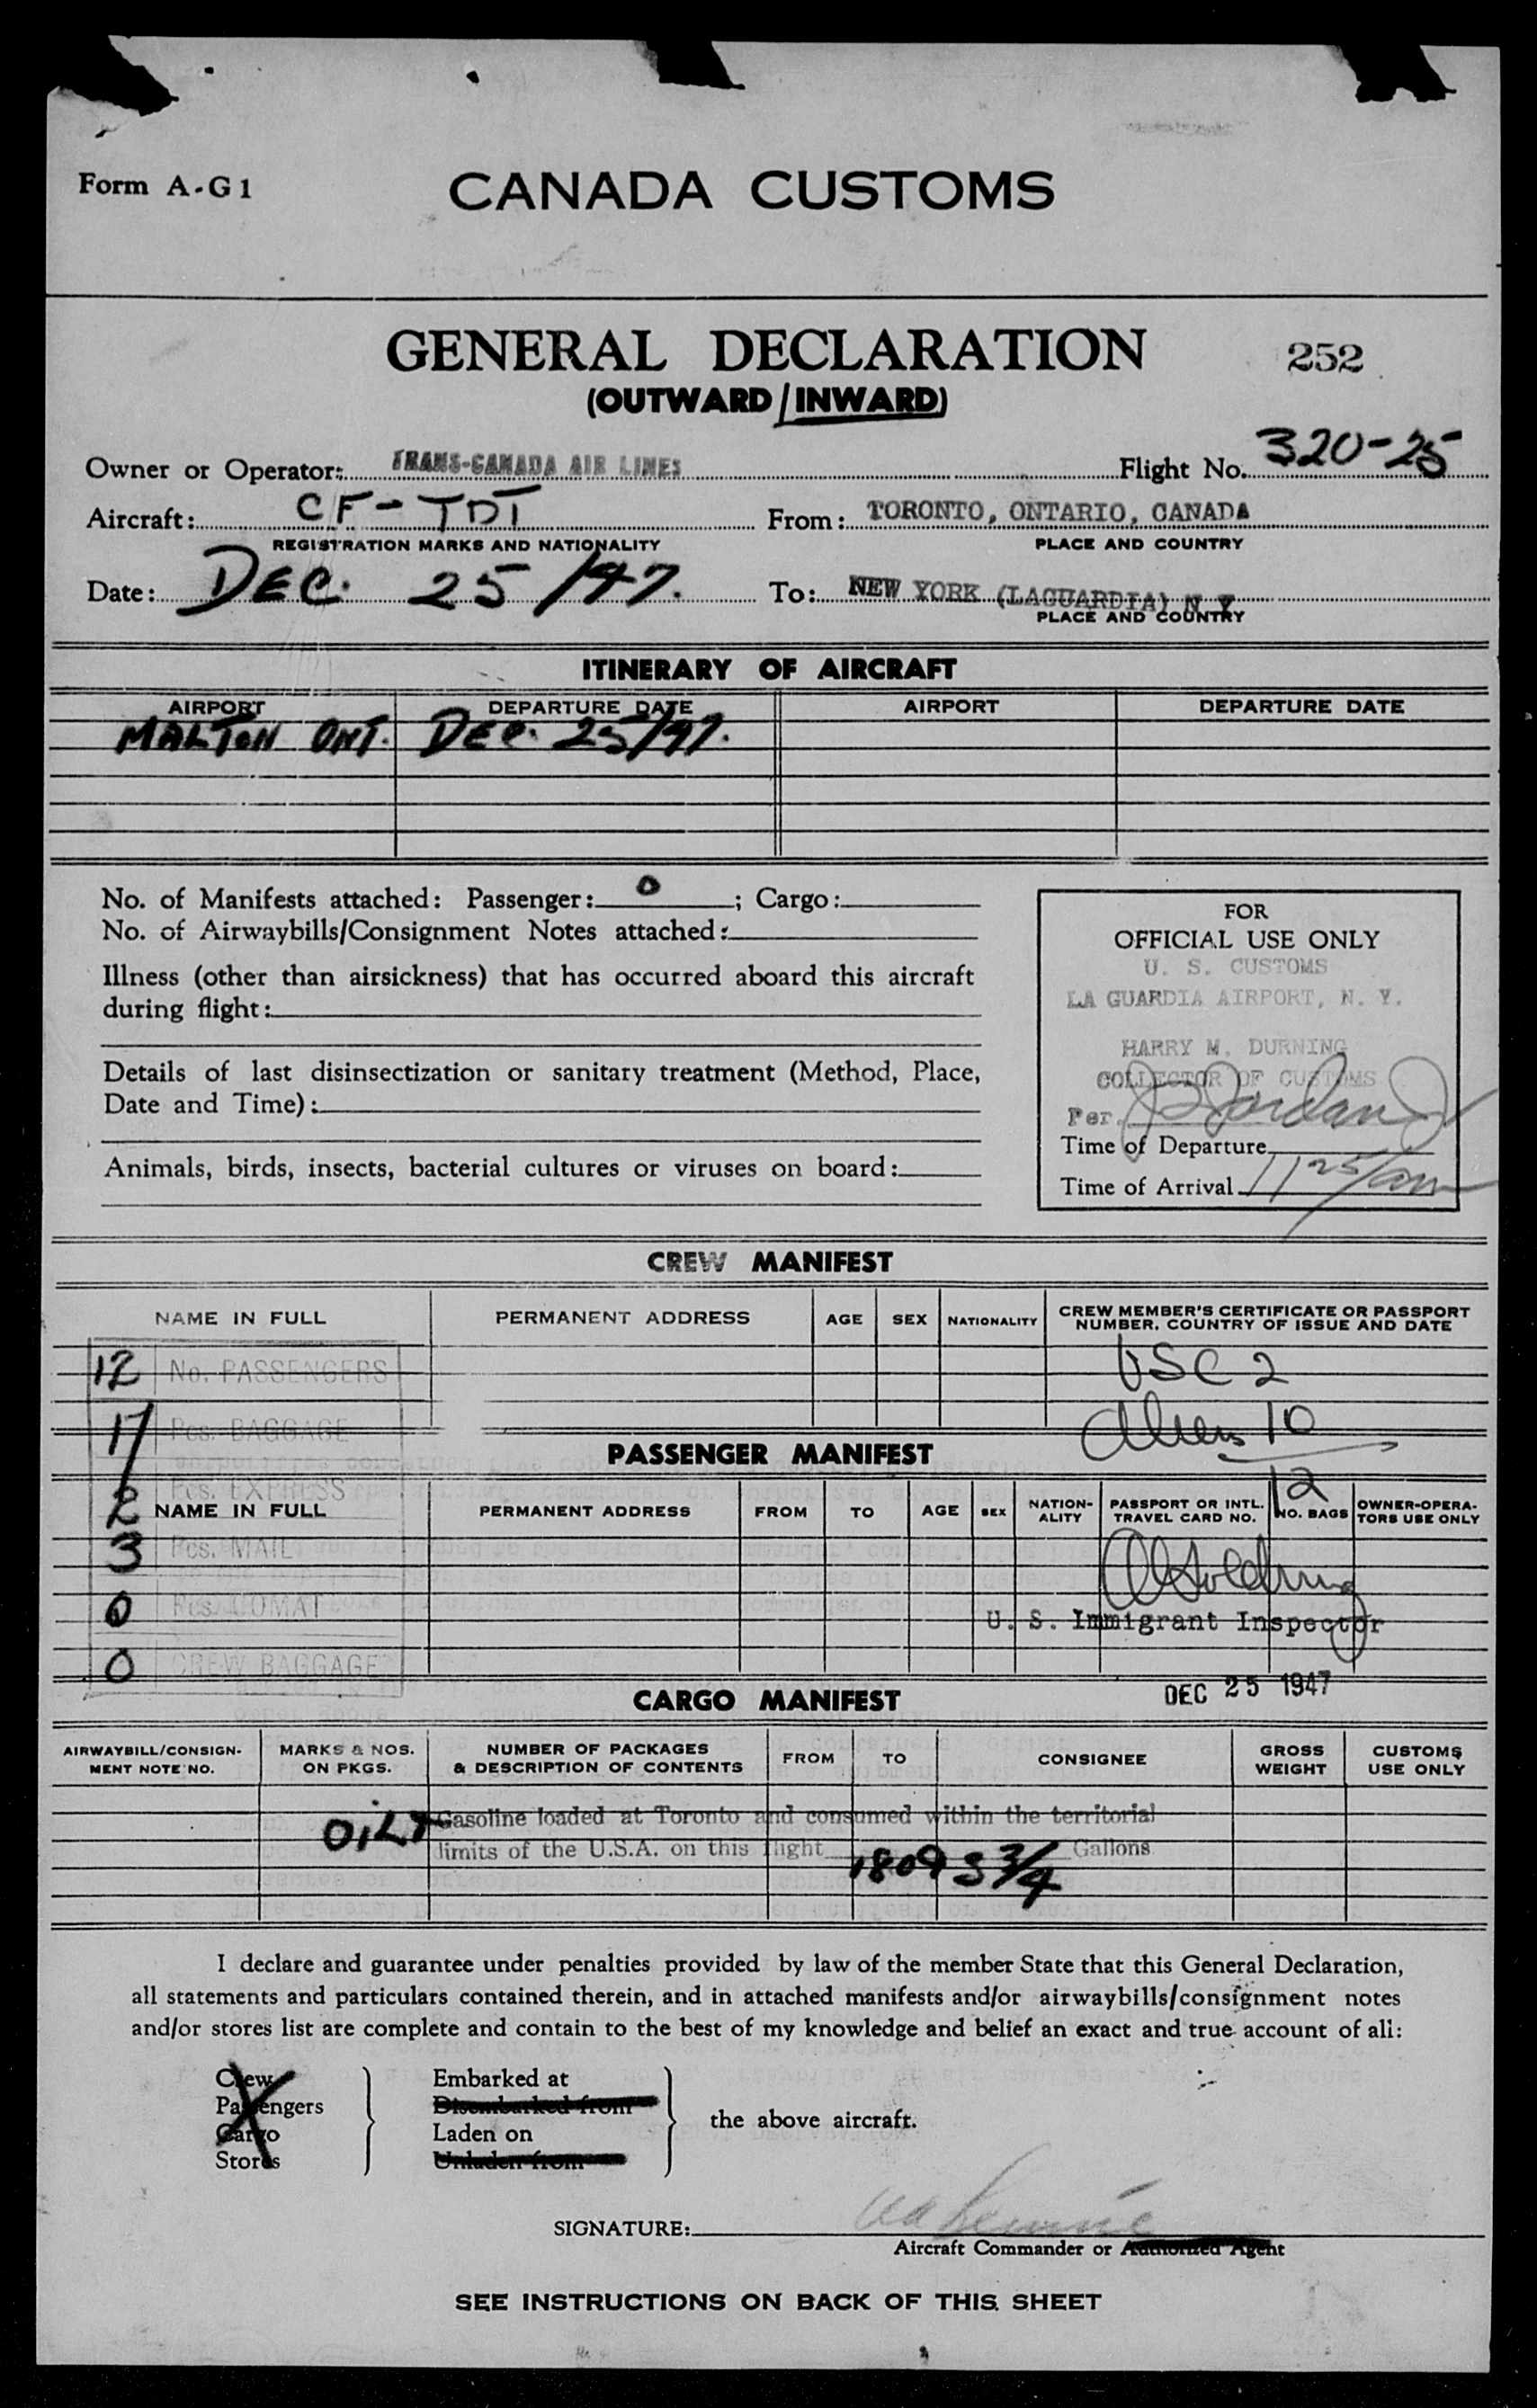 Form A-G1
CANADA CUSTOMS
GENERAL DECLARATION 252
(OUTWARD/INWARD)
Owner or Operator: TRANS-CANADA AIR LINES Flight No. 320-25
Aircraft: CF-TDT From: TORONTO, ONTARIO, CANADA
REGISTRATION MARKS AND NATIONALITY PLACE AND COUNTRY
Date: DEC. 25/47. To: NEW YORK (LAGUARDIA) N Y
PLACE AND COUNTRY
ITINERARY OF AIRCRAFT
AIRPORT DEPARTURE DATE AIRPORT DEPARTURE DATE
MALTON ONT. DEC. 25/47.
No. of Manifests attached: Passenger: 0; Cargo:
No. of Airwaybills/Consignment Notes attached:
Illness (other than airsickness) that has occurred aboard this aircraft
during flight:
Details of last disinsectization or sanitary treatment (Method, Place,
Date and Time):
Animals, birds, insects, bacterial cultures or viruses on board:
FOR
OFFICIAL USE ONLY
U. S. CUSTOMS
LA GUARDIA AIRPORT, N. Y.
HARRY M. DURNING
COLLECTOR OF CUSTOMS
Per. Jordan
Time of Departure
Time of Arrival 1125/am
CREW MANIFEST
NAME IN FULL PERMANENT ADDRESS AGE SEX NATIONALITY CREW MEMBER'S CERTIFICATE OR PASSPORT
NUMBER, COUNTRY OF ISSUE AND DATE
12 No. PASSENGERS USC 2
17 Pcs. BAGGAGE Aliens 10
PASSENGER MANIFEST
2 Pcs. EXPRESS 12
NAME IN FULL PERMANENT ADDRESS FROM TO AGE SEX NATION-
ALITY PASSPORT OR INTL.
TRAVEL CARD NO. NO. BAGS OWNER-OPERA-
TORS USE ONLY
3 Pcs. MAIL
0 Pcs. COMAT
U. S. Immigrant Inspector
0 CREW BAGGAGE
DEC 25 1947
CARGO MANIFEST
AIRWAYBILL/CONSIGN-
MENT NOTE NO. MARKS & NOS.
ON PKGS. NUMBER OF PACKAGES
& DESCRIPTION OF CONTENTS FROM TO CONSIGNEE GROSS
WEIGHT CUSTOMS
USE ONLY
OIL & Gasoline loaded at Toronto and consumed within the territorial
limits of the U.S.A. on this flight 180 3 3/4 Gallons
I declare and guarantee under penalties provided by law of the member State that this General Declaration,
all statements and particulars contained therein, and in attached manifests and/or airwaybills/consignment notes
and/or stores list are complete and contain to the best of my knowledge and belief an exact and true account of all:
Crew Embarked at
Passengers Disembarked from
Cargo Laden on
Stores Unladen from
the above aircraft.
SIGNATURE:
Aircraft Commander or Authorized Agent
SEE INSTRUCTIONS ON BACK OF THIS SHEET